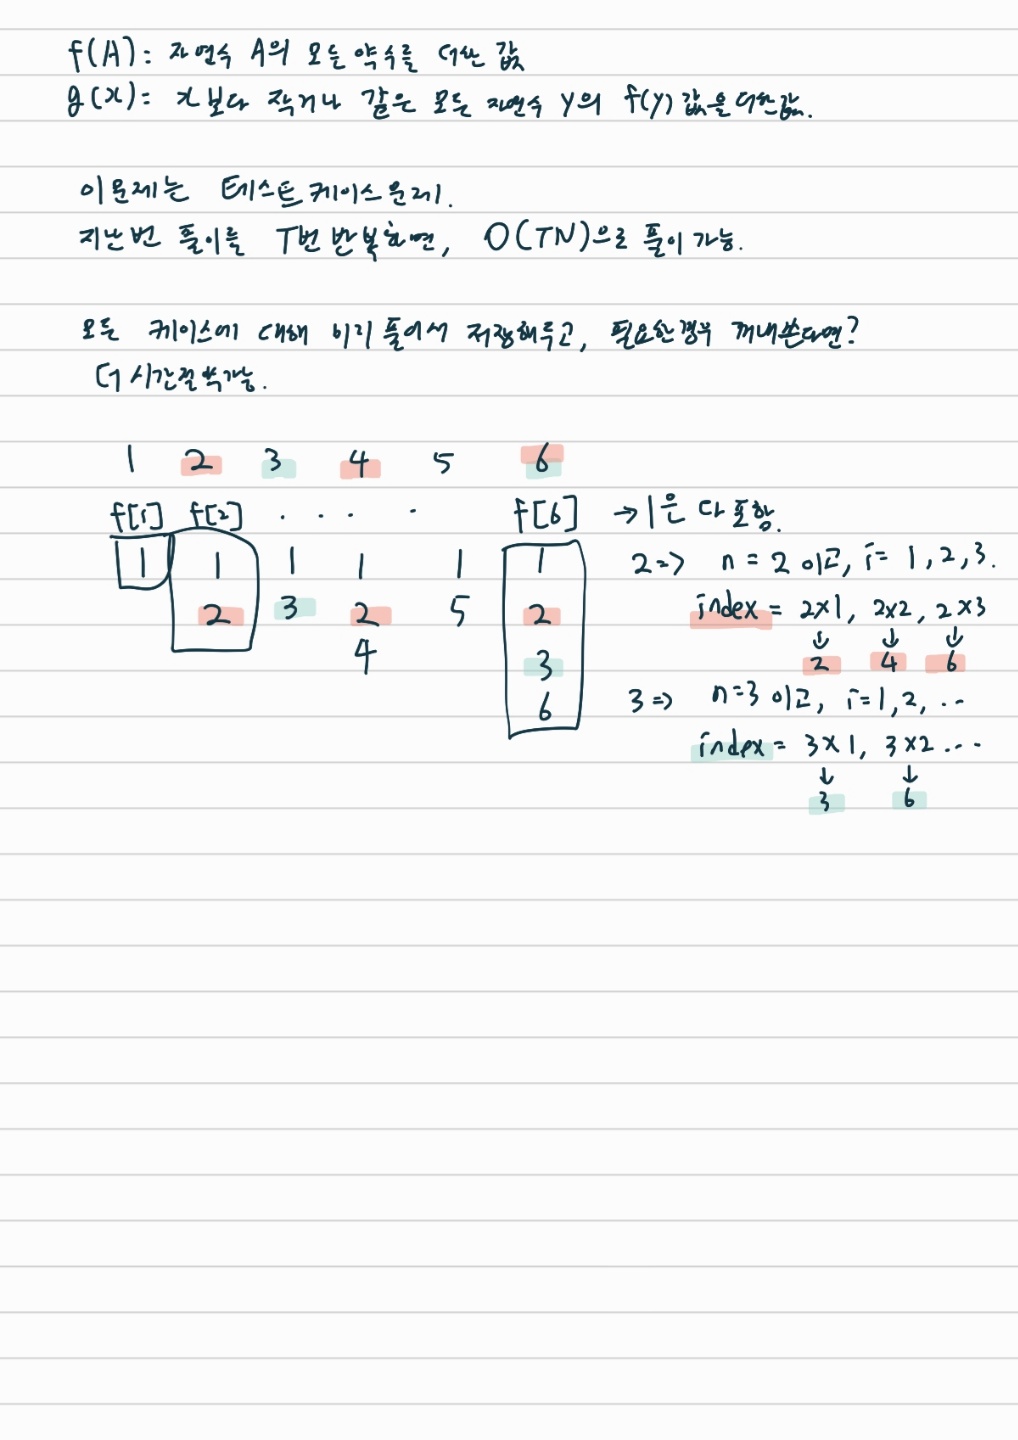 f(A): 자연수 A의 모든 약수를 더한 값
g(x): x보다 작거나 같은 모든 자연수 y의 f(y)값을 더한값.
이 문제는 테스트케이스문제.
지난번 풀이를 T번 반복하면, O(TN)으로 풀이 가능.
모든 케이스에 대해 미리 풀어서 저장해두고, 필요한경우 꺼내쓴다면?
더 시간절약가능.
1 2 3 4 5 6
f[1] f[2] . . . . f[6] → 1은 다 포함.
1 1 1 1 1 1 2=> n = 2 이고, i= 1, 2, 3.
2 3 2 5 2 index = 2x1, 2x2, 2x3
4 3 ↓ 2 ↓ 4 ↓ 6
6 3 => n=3 이고, i=1, 2, ..
index = 3x1, 3x2 ...
↓ ↓
3 6